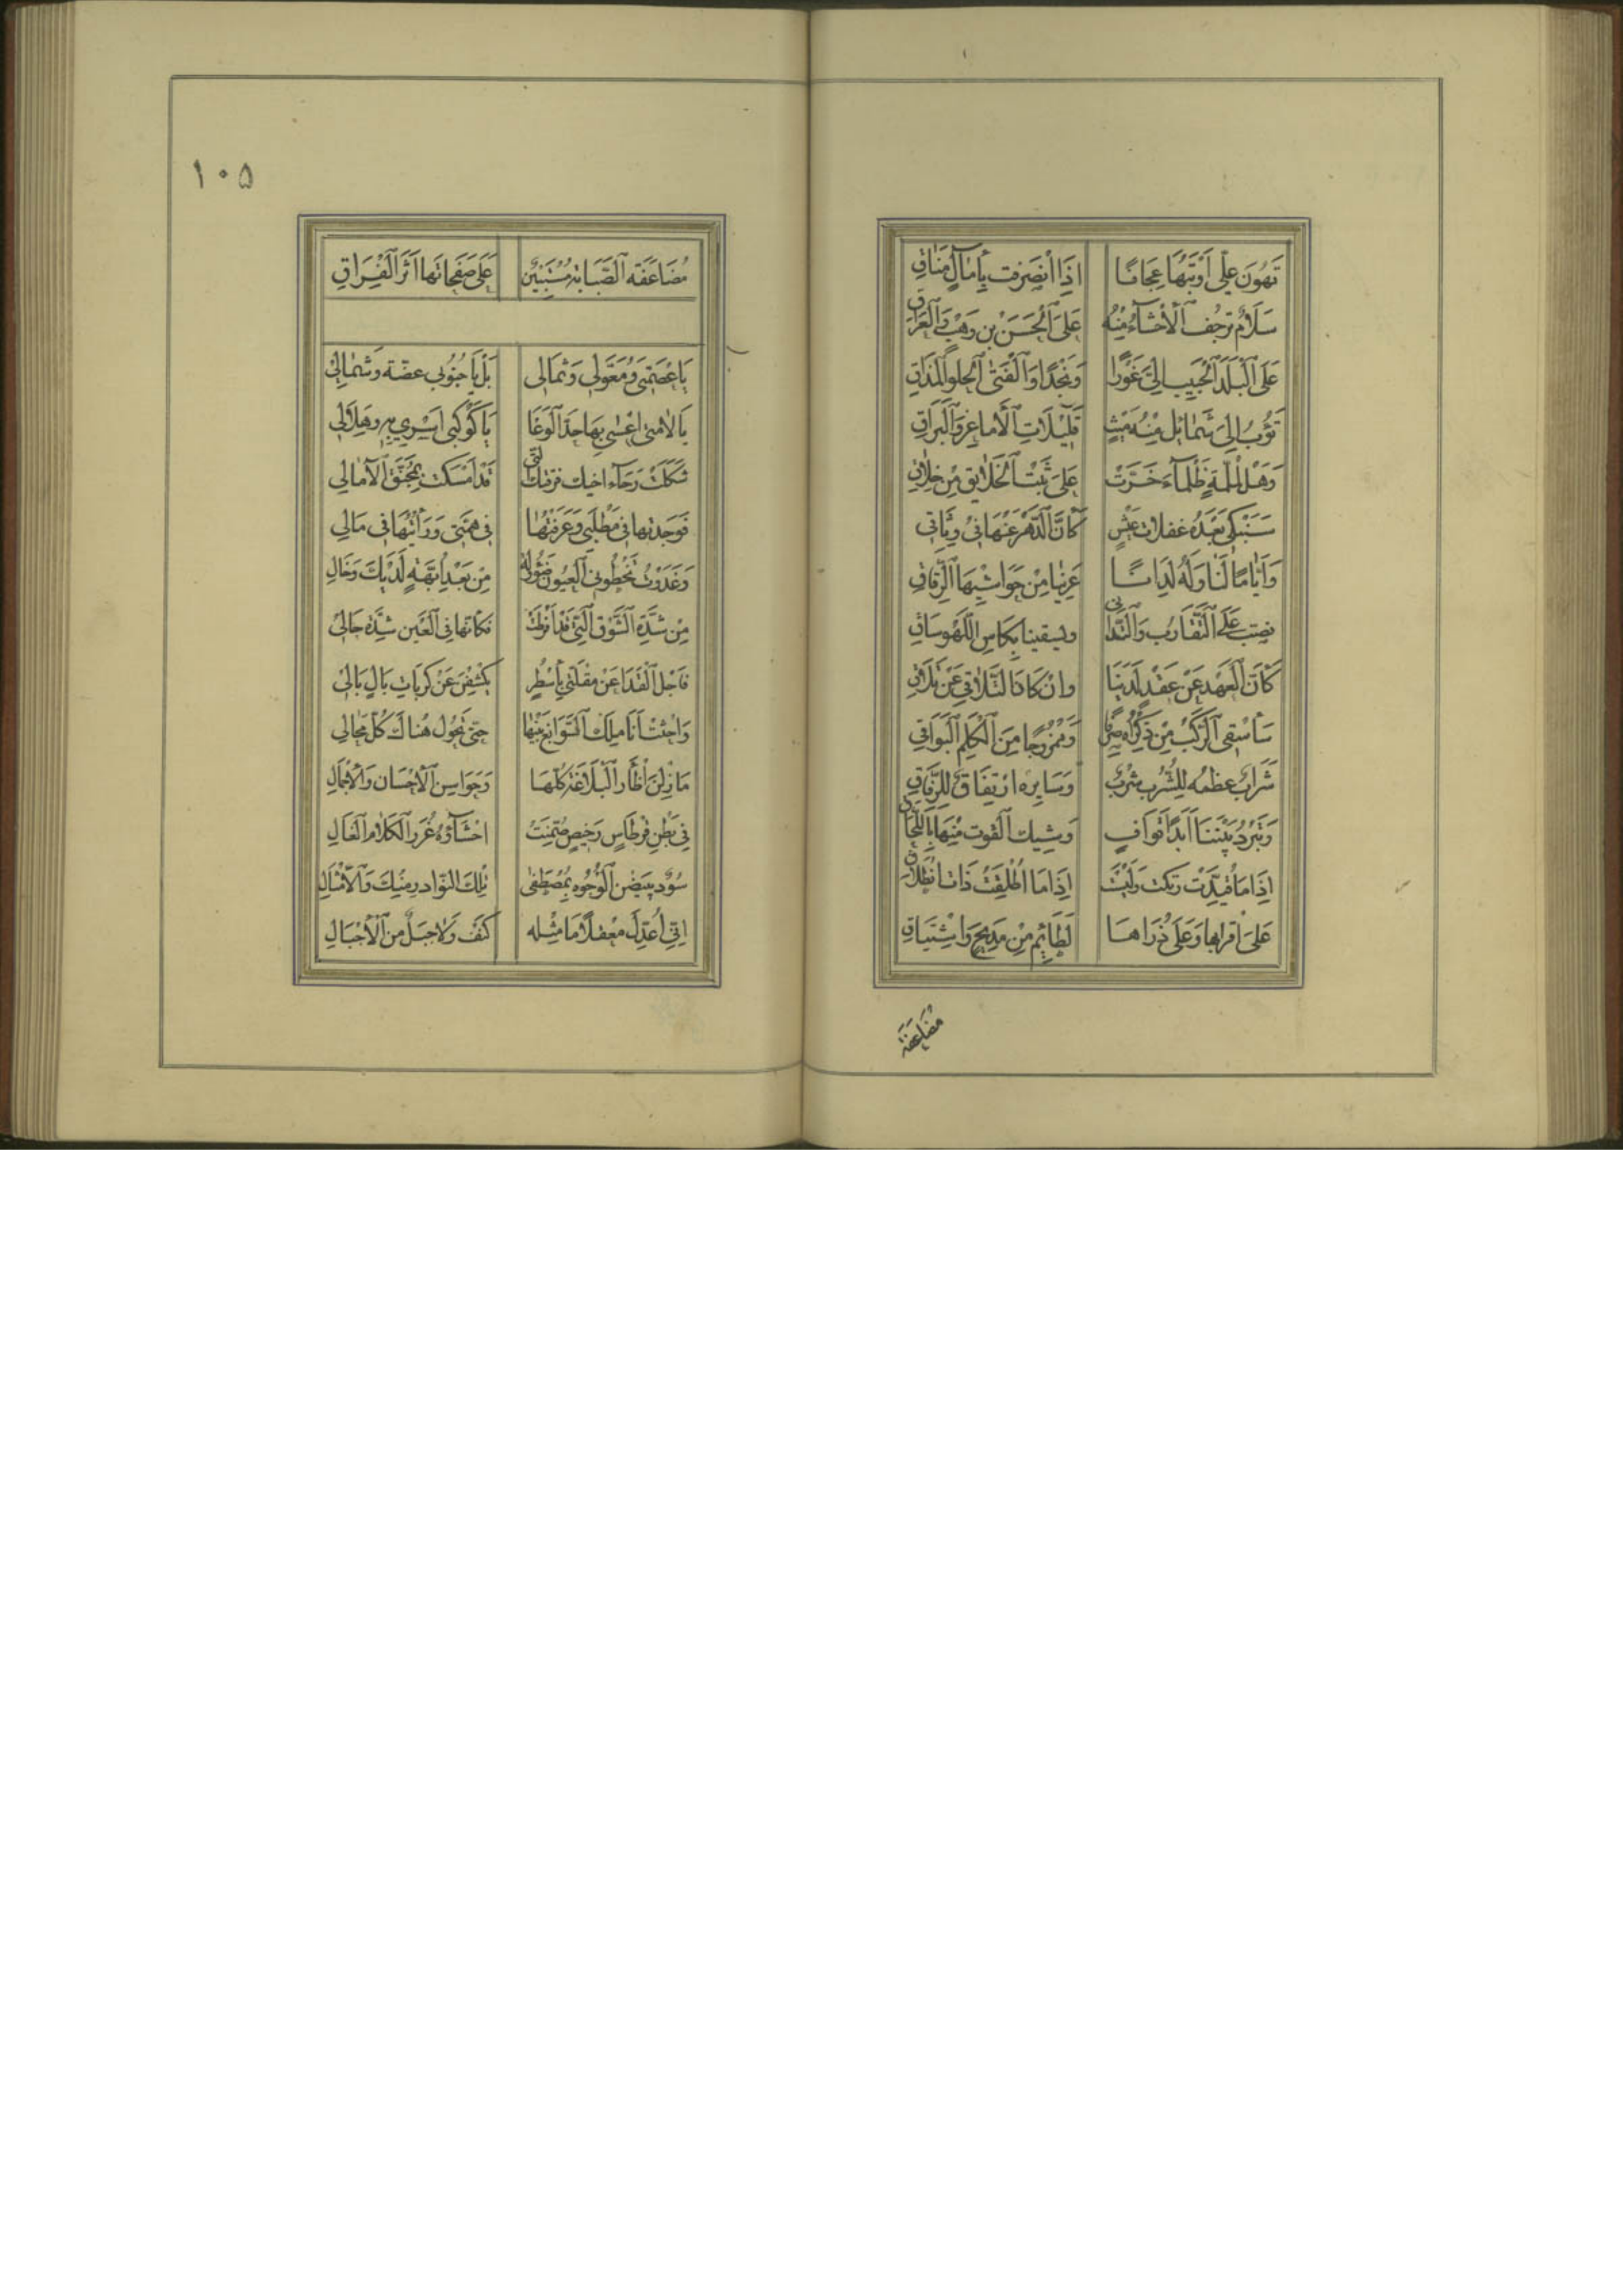 تَهُونُ عَلَيَّ اَوْبَتُهَا عِجَافًا اِذَا اَنْصَرَفَت بِآمَالٍ مَنَاقِ
سَلَامٌ تَرْجُفُ الْأَحْشَاءُ مِنْهُ عَلَى الْحَسَنِ بْنِ وَهْبٍ وَالْعِرَاقِ
عَلَى الْبَلَدِ الْحَبِيبِ اِلَيَّ غَوْرًا وَنَجْدًا وَالْفَتَى الْحُلْوِ الْمَذَاقِ
الْأَمَاعِزِ وَالْبِرَاقِ
وَهَلْ لِمُلِمَّةٍ ظَلْمَاءَ عَلَى ثَبْتِ الْخَلَائِقِ مِنْ خِلَاقِ
سَنَبْكِي بَعْدَهُ غفلات عَيْشٍ كَأَنَّ الدَّهْرَ عَنْهَا فِي وَثَاقِ
وَاَيَّامًا لَنَا وَلَهُ لِدَانًا عَرِينَا مِنْ حَوَاشِيهَا الرِّقَاقِ
عَلَى التَّقَارُبِ وَالتَّدَانِي ويسقينا بِكَاسِ اللَّهْوِ سَاقِ
كَأَنَّ الْعَهْدَ عَنْ عَقْدٍ لَدَيْنَا وان كَانَ التَّلَاقِي عَنْ تَلَاقِ
سَأَسْقِي الرَّكْبَ مِنْ ذِكْرَاهُ صِرْفًا وَمَمْزُوجًا مِنَ الْكَلِمِ الْبَوَاقِي
شَرَابٌ عظمه لِلشَّرْبِ شُرْبٌ وَسَايِرُهُ ارْتِفَاقٌ لِلرِّفَاقِ
وَتَبْرُدُ بَيْنَنَا اَبَدًا قَوَافٍ وَشِيكُ الْفوت مِنْهَا بِاللَّحَاقِ
اِذَا مَا قُيِّدَتْ رتكت وَلَيْسَتْ اِذَا مَا اُطْلِقَتْ ذَات انْطِلَاقِ
عَلَى اقرابها وَعَلَى ذُرَاهَا لَطَائِمُ مِنْ مَدِيحٍ وَاشْتِيَاقِ
مضاعفة
١٠٥
مُضَاعَفَة الصَّبَابَةِ مُسْتَبِينٌ عَلَى صَفَحَاتِهَا اَثَرُ الْفِرَاقِ
يَا عِصْمَتِي وَمُعَوَّلِي وَثِمَالِي بَلْ يَا جَنُوبِي غضة وَشَمَالِي
يَا لَامَتِي اغْشى بِهَا حَدَّ الْوَغَا يَا كَوْكَبِي اسْرِي بِهِ وَهِلَالِي
قَدْ اَمْسَكَت بِمُخَنَّقِ الْآمَالِ
فَوَجَدتها فِي مَطْلَبِي وَعَرَفْتُهَا فِي هِمَّتِي وَرَأَيْتُهَا فِي مَالِي
وَغَدَوْتُ تَخْطُونِي الْعُيُونُ مِنْ بَعْدِ اُبَّهَةٍ لَدَيْكَ وَخَالِ
مِنْ شِدَّةِ الشَّوْقِ الَّتِي فَكَأَنَّهَا فِي الْعَيْنِ شِدَّة حَالِي
فَاجْلُ الْقَذَا عَنْ مقْلَتَي بِأَسْطُرٍ يَكْشِفْنَ عَنْ كَرَبَاتِ بَالٍ بَالِي
حَتَّى تَجُول هُنَاكَ كُلَّ مَجَالِ
مَا زِلْنَ اَظْآر الْبَلَاغَة كُلّهَا وَحَوَاضِن الْأِحْسَان وَالْأِجْمَالِ
فِي بَطْنِ قِرْطَاسٍ رَخِيصٍ ضُمِّنَتْ احْشَاؤُهُ غُرَر الْكَلَام الْغَالِ
سُودٌ يبيضن الْوُجُوه بِمُصْطَفَى تِلْكَ النَّوَادر مِنْكَ وَالْأَمْثَالِ
اِنِّي اعدك معْقلًا مَا مِثْله كَهْف وَلَا جَبَل مِن الْأَجْبَالِ